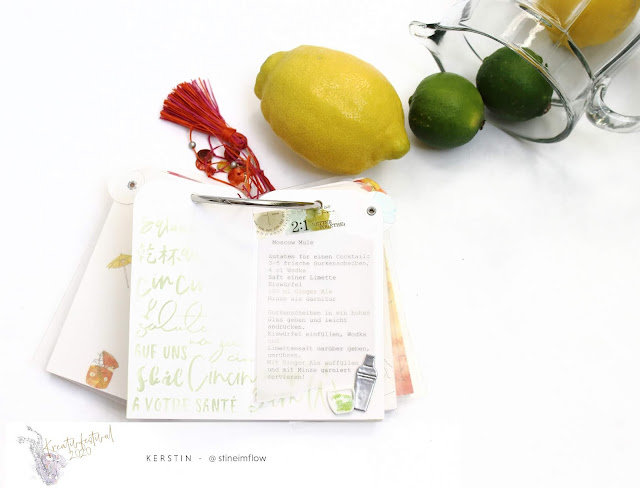 乾杯
CINCIN
Salute
AUF UNS
Skål Cincin
A VOTRE SANTÉ
2:1
Moscow Mule
Zutaten für einen Cocktail:
3-5 frische Gurkenscheiben,
4 cl Wodka
Saft einer Limette
Eiswürfel
Ginger Ale
Minze als Garnitur
Gurkenscheiben in ein hohes
Glas geben und leicht
andrücken.
Eiswürfel einfüllen, Wodka
und
Limettensaft darüber geben,
verrühren.
Mit Ginger Ale auffüllen
und mit Minze garniert
servieren!
Kreativfestival
2020
KERSTIN - @stineimflow